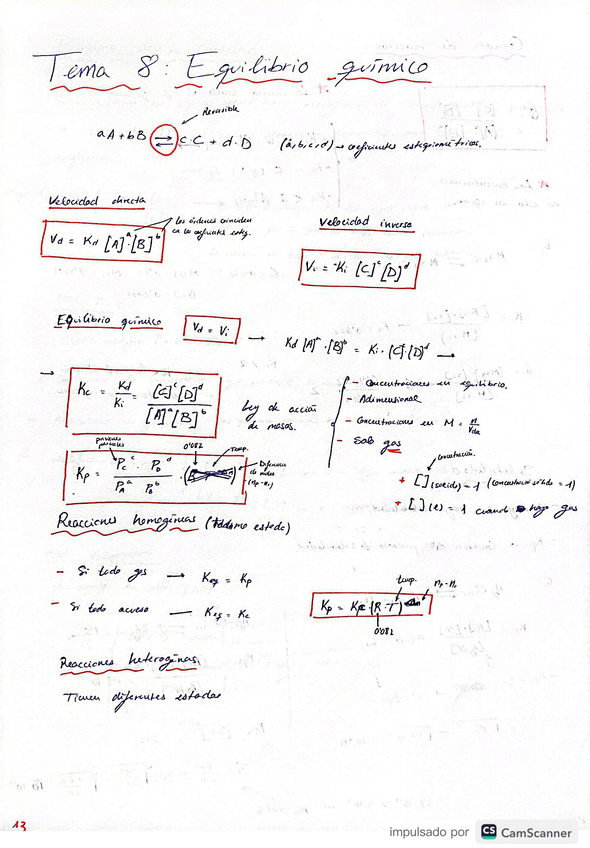 Tema 8: Equilibrio químico
Reversible
aA + bB ⇌ cC + d·D (a,b,c,d) → coeficientes esteqiométricos.
Velocidad directa
Vd = Kd [A]^a·[B]^b
los órdenes coinciden
en los coeficientes esteq.
Velocidad inversa
Vi = Ki [C]^c[D]^d
Equilibrio químico Vd = Vi → Kd [A]^a·[B]^b = Ki·[C]^c[D]^d →
→ Kc = Kd/Ki = [C]^c[D]^d / [A]^a[B]^b
Ley de acción
de masas.
- Concentraciones en equilibrio.
- Adimensional
- Concentraciones en M = n/Vdis
- Solo gas
concentración.
* [ ](solido) = 1 (concentración sólido = 1)
* [ ](l) = 1 cuando haya gas
presiones
parciales
0'082
temp.
Diferencia
de moles
(np-nr)
Kp = Pc^c · PD^d / PA^a · PB^b
Reacciones homogéneas (mismo estado)
- Si todo gas → Keq = Kp
- Si todo acuoso — Keq = Kc
temp.
np-nr
Kp = Kc (R·T)
0'082
Reacciones heterogéneas
Tienen diferentes estados
13
impulsado por CS CamScanner